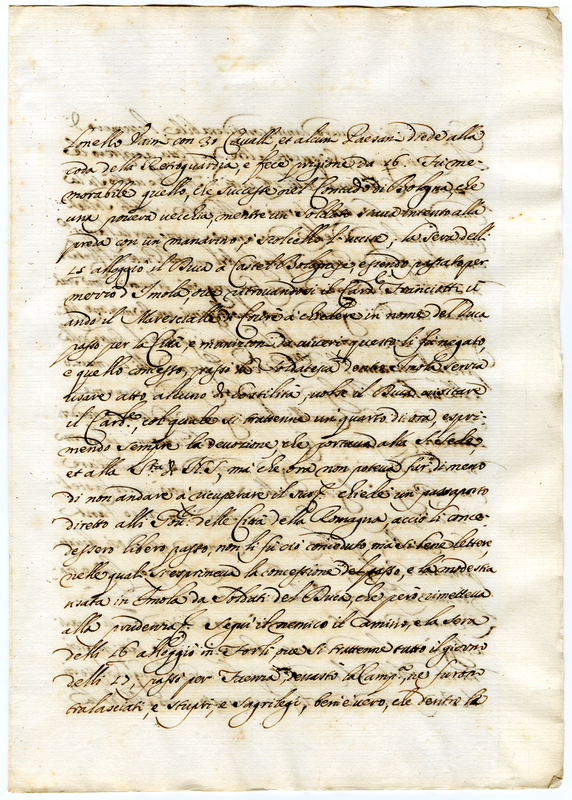 Lonello Vain con 30 Cavalli, et alcuni Paesani diede alla
coda della Retroguardia, e fece prigione da 16. Fù me-
morabile quello, che successe nel Contado di Bologna, che
una povera vecchia, mentre un Soldato stava intento alla
presa con un manarino l'uccise, la sera delli
15 alloggiò il Duca à Castel Bolognese, essendo passato per
mezzo d'Imola, ove ritrovandosi il Card.le Franciotti, m
ando il Marescialle à chiedere in nome del Duca
passo per la Città, e munizioni da viveri, questo li fù negato,
e quello concesso, passò la Soldatesca dentro Imola senza
usare atto alcuno di hostilità, volse il Duca visitare
il Card.le, col quale si trattenne un quarto di ora, espri-
mendo sempre la devozione, che portava alla S. Sede,
et alla S.tà di N. S., ma che ora non poteva far di meno
di non andare à ricuperare il suo, chiede un passaporto
diretto alli Gov.ri delle Città della Romagna, acciò li conce-
dessero libero passo, non li fù ciò conceduto, ma si bene lettere,
nelle quali si esprimeva la concessione del passo, e la modestia
usata in Imola da Soldati del Duca, che però rimetteva
alla prudenza. Seguì il nemico il Camino, e la sera
delli 16 alloggiò in Forlì, ove si trattenne tutto il giorno
delli 17, passò per Faenza, devastò la Camp.a, nè furono
tralasciati, e stupri, e sagrilegi, ben è vero, che dentro la